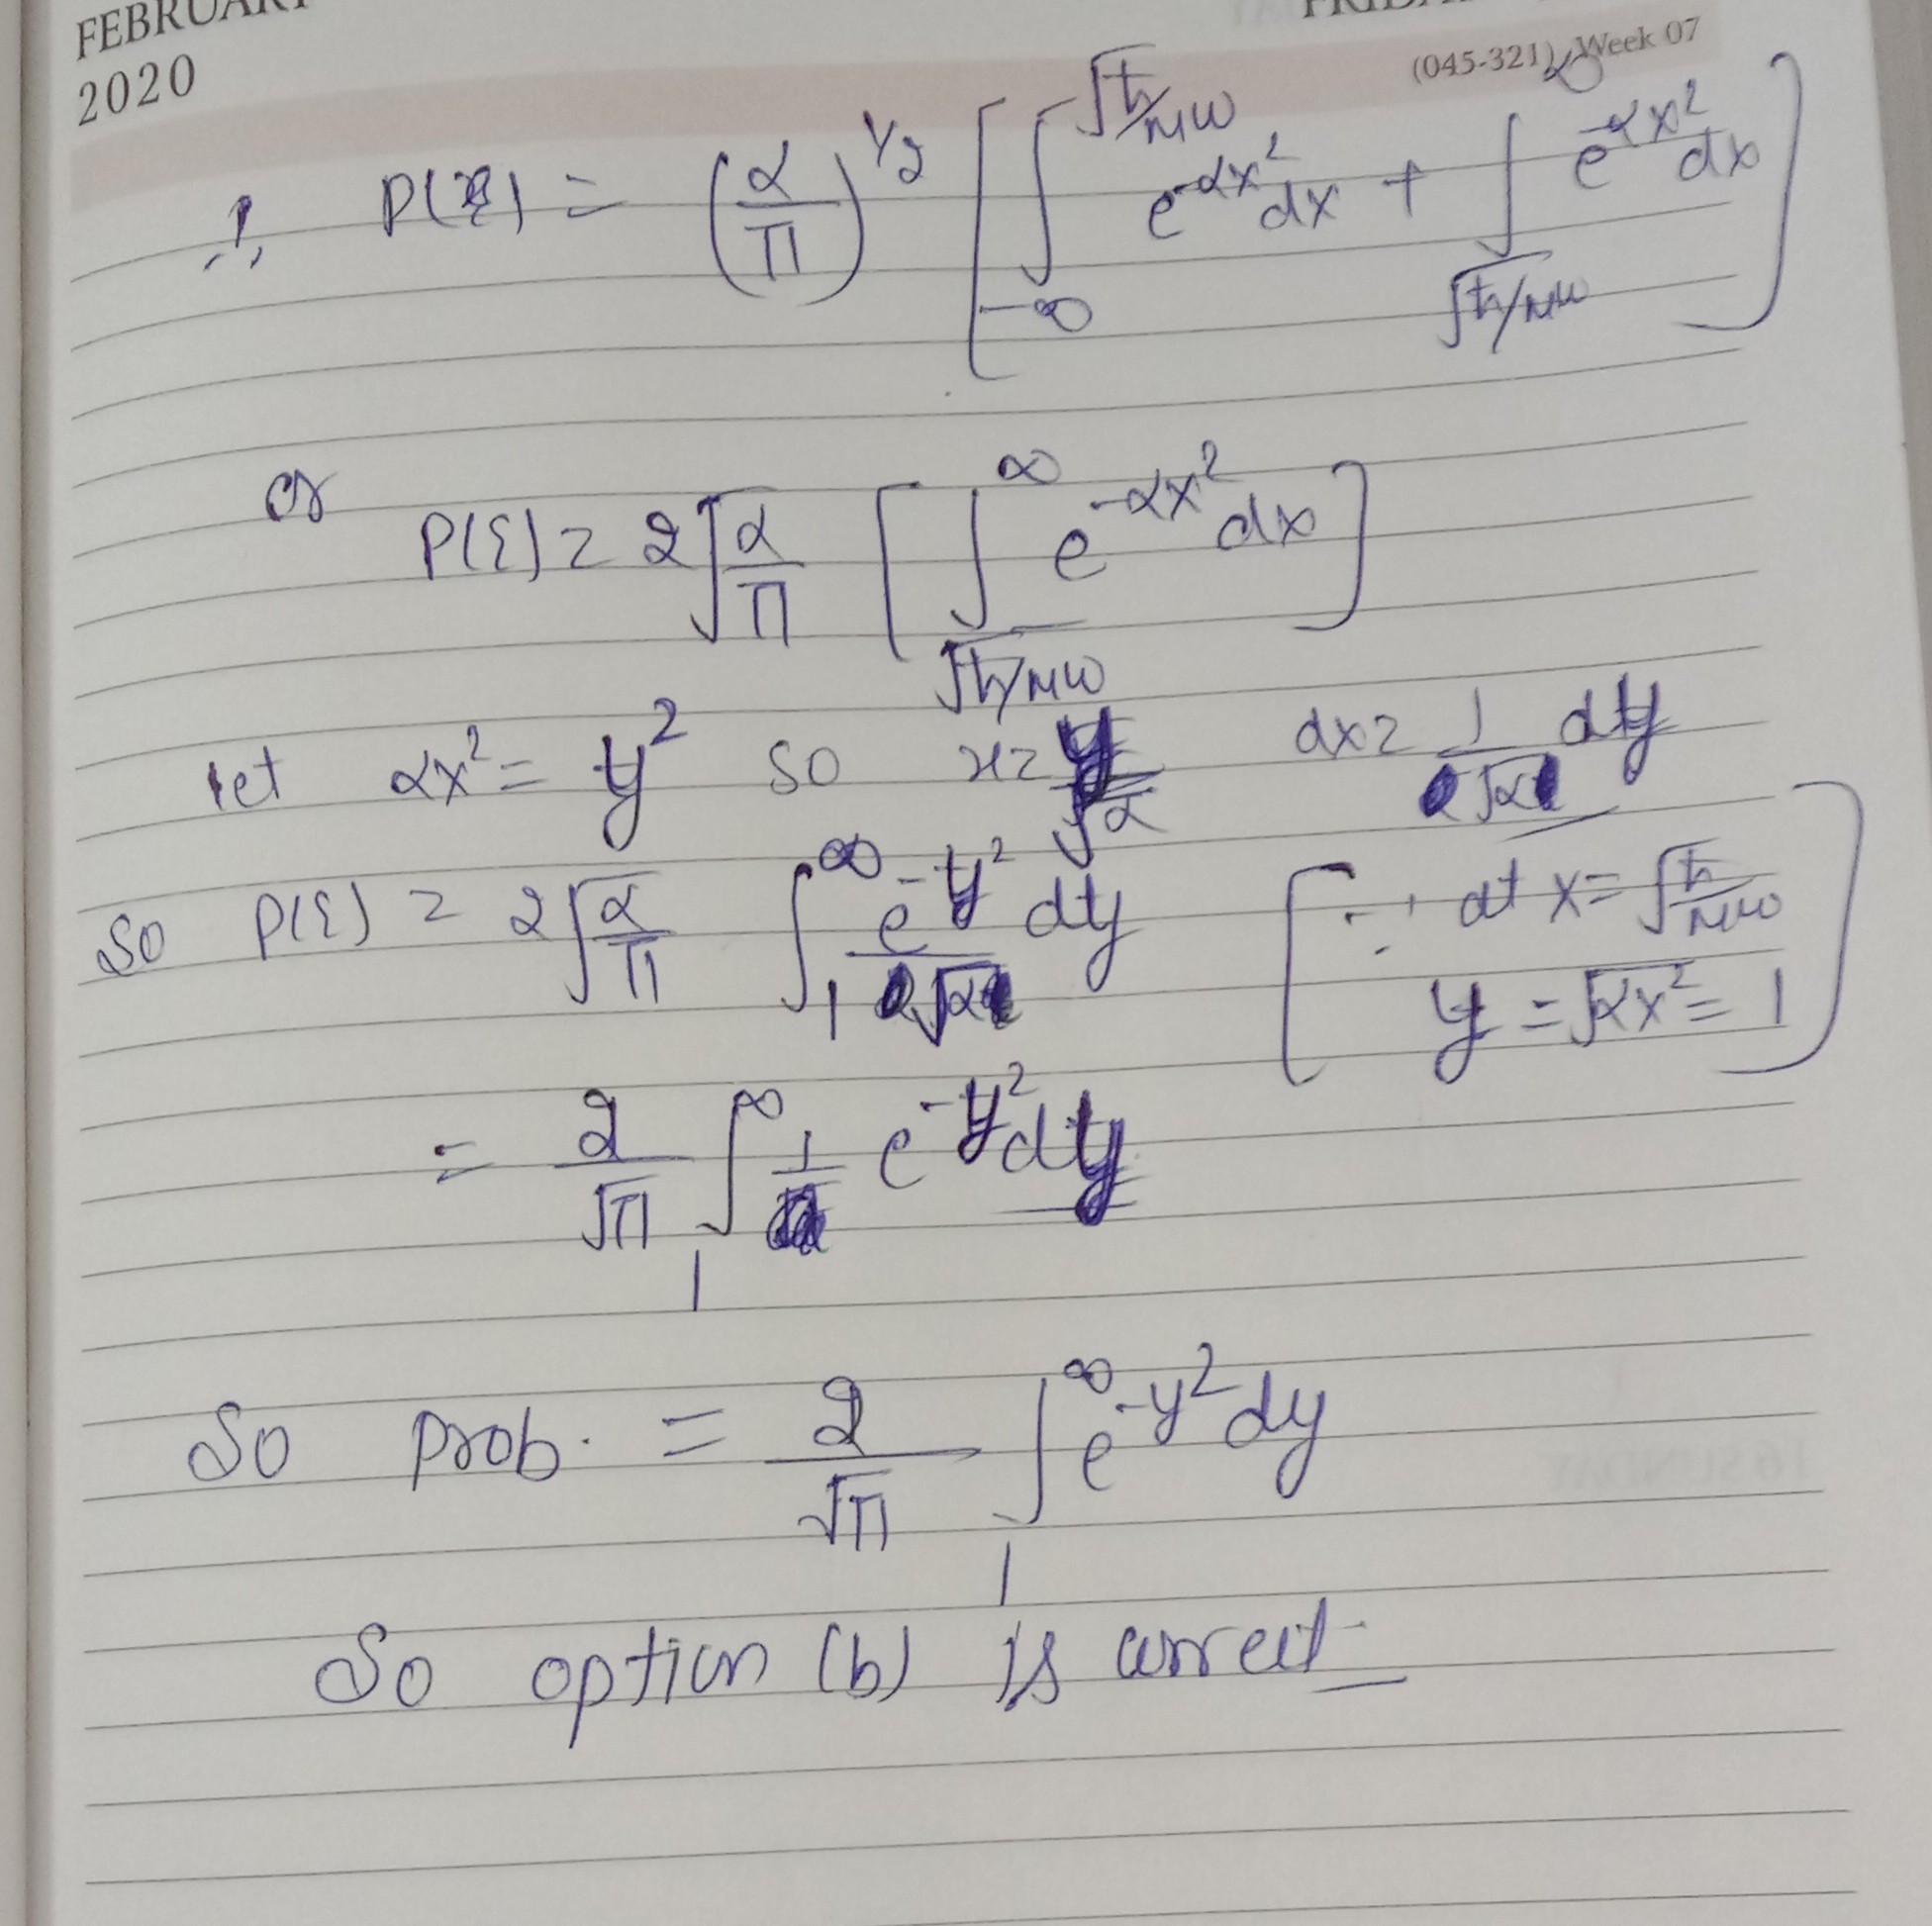 FEBRUARY
2020
(045-321) Week 07
∴ P(ξ) = (α/π)^1/2 [ ∫_{-∞}^{√ħ/mω} e^{-αx²} dx + ∫_{√ħ/mω}^{∞} e^{-αx²} dx ]
or P(ξ) = 2√(α/π) [ ∫_{√ħ/mω}^{∞} e^{-αx²} dx ]
let αx² = y² so x = y/√α dx = 1/√α dy
So P(ξ) = 2√(α/π) ∫_1^∞ e^{-y²}/√α dy [ ∵ at x = √ħ/mω
y = √αx² = 1 ]
= 2/√π ∫_1^∞ e^{-y²} dy
So prob. = 2/√π ∫_1^∞ e^{-y²} dy
So option (b) is correct